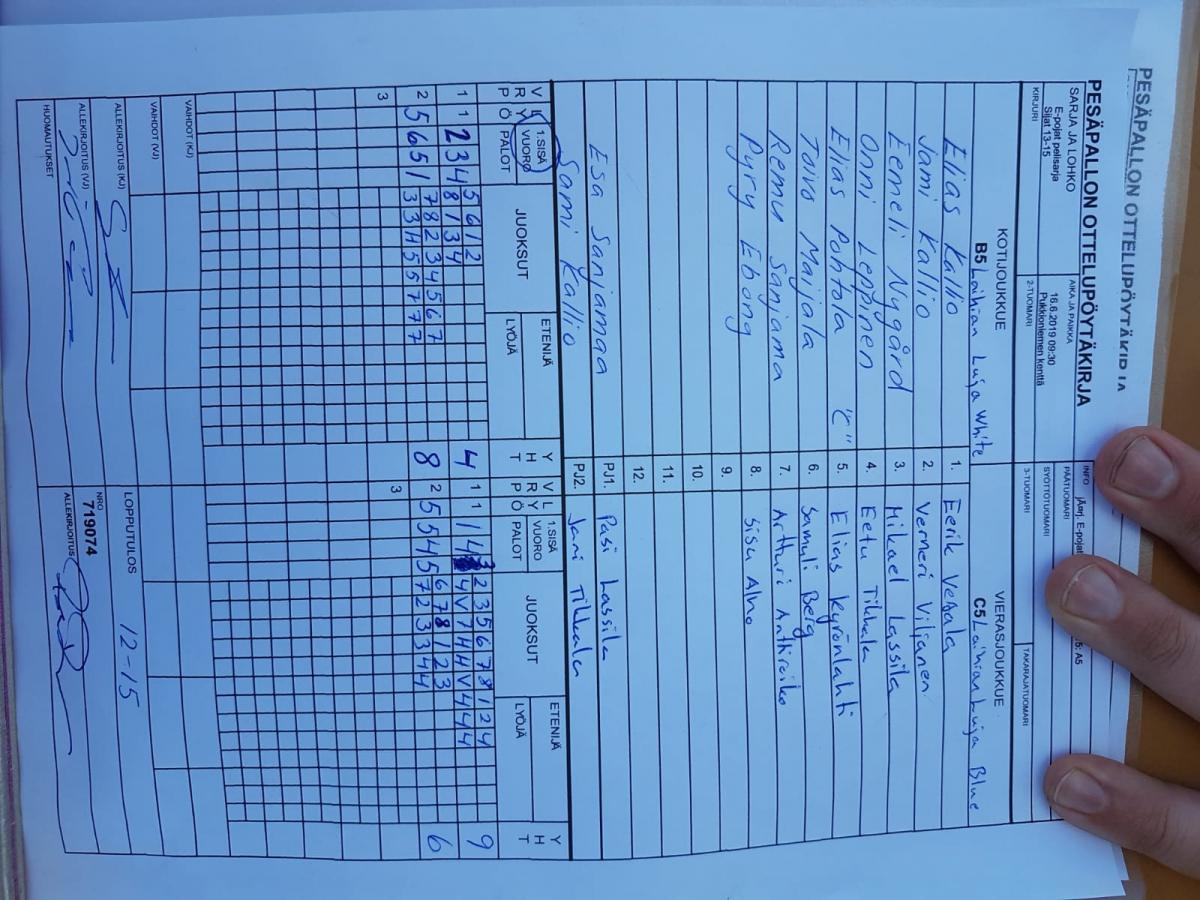 PESÄPALLON OTTELUPÖYTÄKIRJA
PESÄPALLON OTTELUPÖYTÄKIRJA
SARJA JA LOHKO
E-pojat pelisarja
Sijat 13-15
AIKA JA PAIKKA
16.6.2019 09:30
Pukkionlemen kenttä
INFO
PÄÄTUOMARI
KIRJURI
2-TUOMARI
SYÖTTÖTUOMARI
3-TUOMARI
TAKARAJATUOMARI
KOTIJOUKKUE
VIERASJOUKKUE
B5 Laihian Luja White
C5 Laihian Luja Blue
Elias Kallio 1.
Jami Kallio 2. Verneri Viljanen
Eemeli Nygård 3. Mikael Lassila
Onni Leppinen 4. Eetu Tikkala
Elias Pohtola "C" 5. Elias Kyrönlahti
Toivo Maijala 6. Samuli Berg
Remu Sanjama 7. Artturi
Pyry Ebong 8. Sisu Alho
9.
10.
11.
12.
Esa Sanjamaa PJ1. Pasi Lassila
Sami Kallio PJ2. Jani Tikkala
VRP LYÖ 1.SISÄ VUORO PALOT JUOKSUT ETENIJÄ LYÖJÄ YHT
VRP LYÖ 1.SISÄ VUORO PALOT JUOKSUT ETENIJÄ LYÖJÄ YHT
1 1 2 3 4 5 6 1 2 4
8 1 3 4
2 5 6 5 1 7 8 2 3 4 5 6 7 8
3 3 4 5 5 7 7 7
3
1 1 1 4 3 2 3 5 6 7 8 1 2 4 9
4 V 7 4 4 V 4 4 4
2 5 5 4 5 6 7 8 1 2 3 6
7 2 3 3 4 4
3
VAIHDOT (KJ)
VAIHDOT (VJ)
LOPPUTULOS
12-15
ALLEKIRJOITUS (KJ)
ALLEKIRJOITUS (VJ)
NRO
719074
ALLEKIRJOITUS
HUOMAUTUKSET